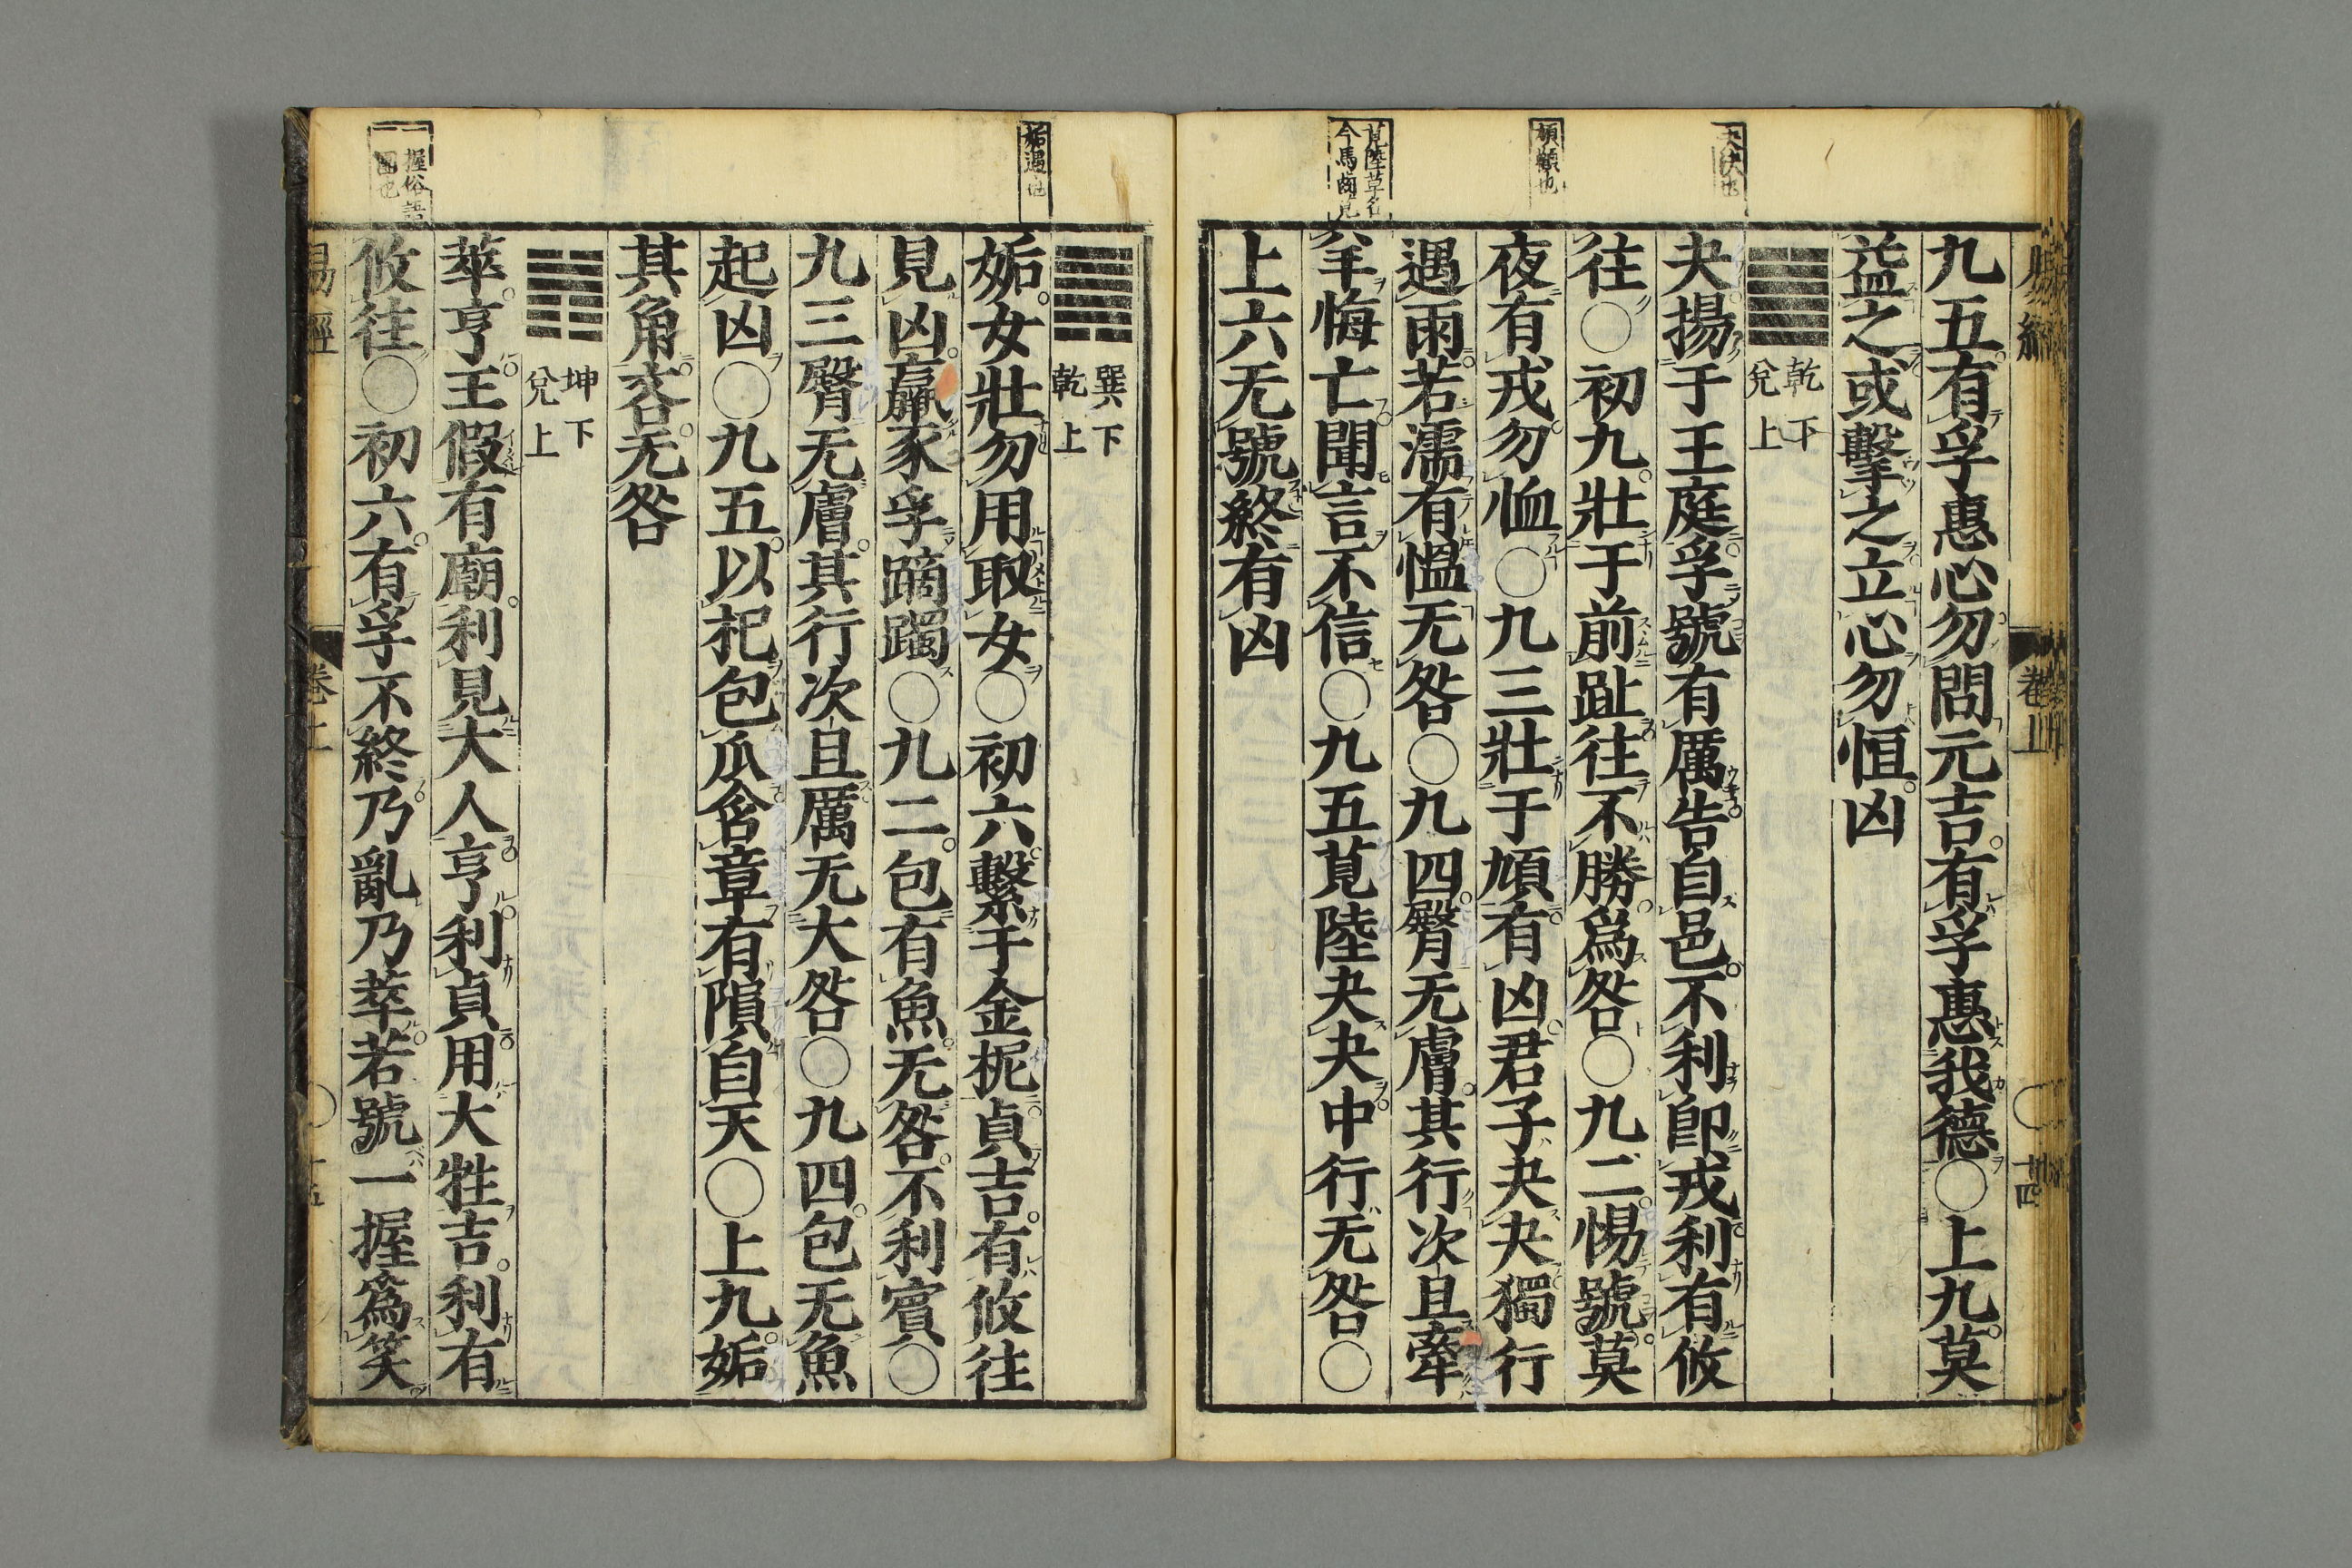 夬決也
頄顴也
莧陸草名
今馬齒莧
九五有孚惠心勿問元吉有孚惠我德○上九莫
益之或擊之立心勿恒凶
乾下
兌上
夬揚于王庭孚號有厲告自邑不利即戎利有攸
往○初九壯于前趾往不勝爲咎○九二惕號莫
夜有戎勿恤○九三壯于頄有凶君子夬夬獨行
遇雨若濡有慍无咎○九四臀无膚其行次且牽
羊悔亡聞言不信○九五莧陸夬夬中行无咎○
上六无號終有凶
姤遇也
一握俗語
巽下
乾上
姤女壯勿用取女○初六繫于金柅貞吉有攸往
見凶羸豕孚蹢躅○九二包有魚无咎不利賓○
九三臀无膚其行次且厲无大咎○九四包无魚
起凶○九五以杞包瓜含章有隕自天○上九姤
其角吝无咎
坤下
兌上
萃亨王假有廟利見大人亨利貞用大牲吉利有
攸往○初六有孚不終乃亂乃萃若號一握爲笑
易經